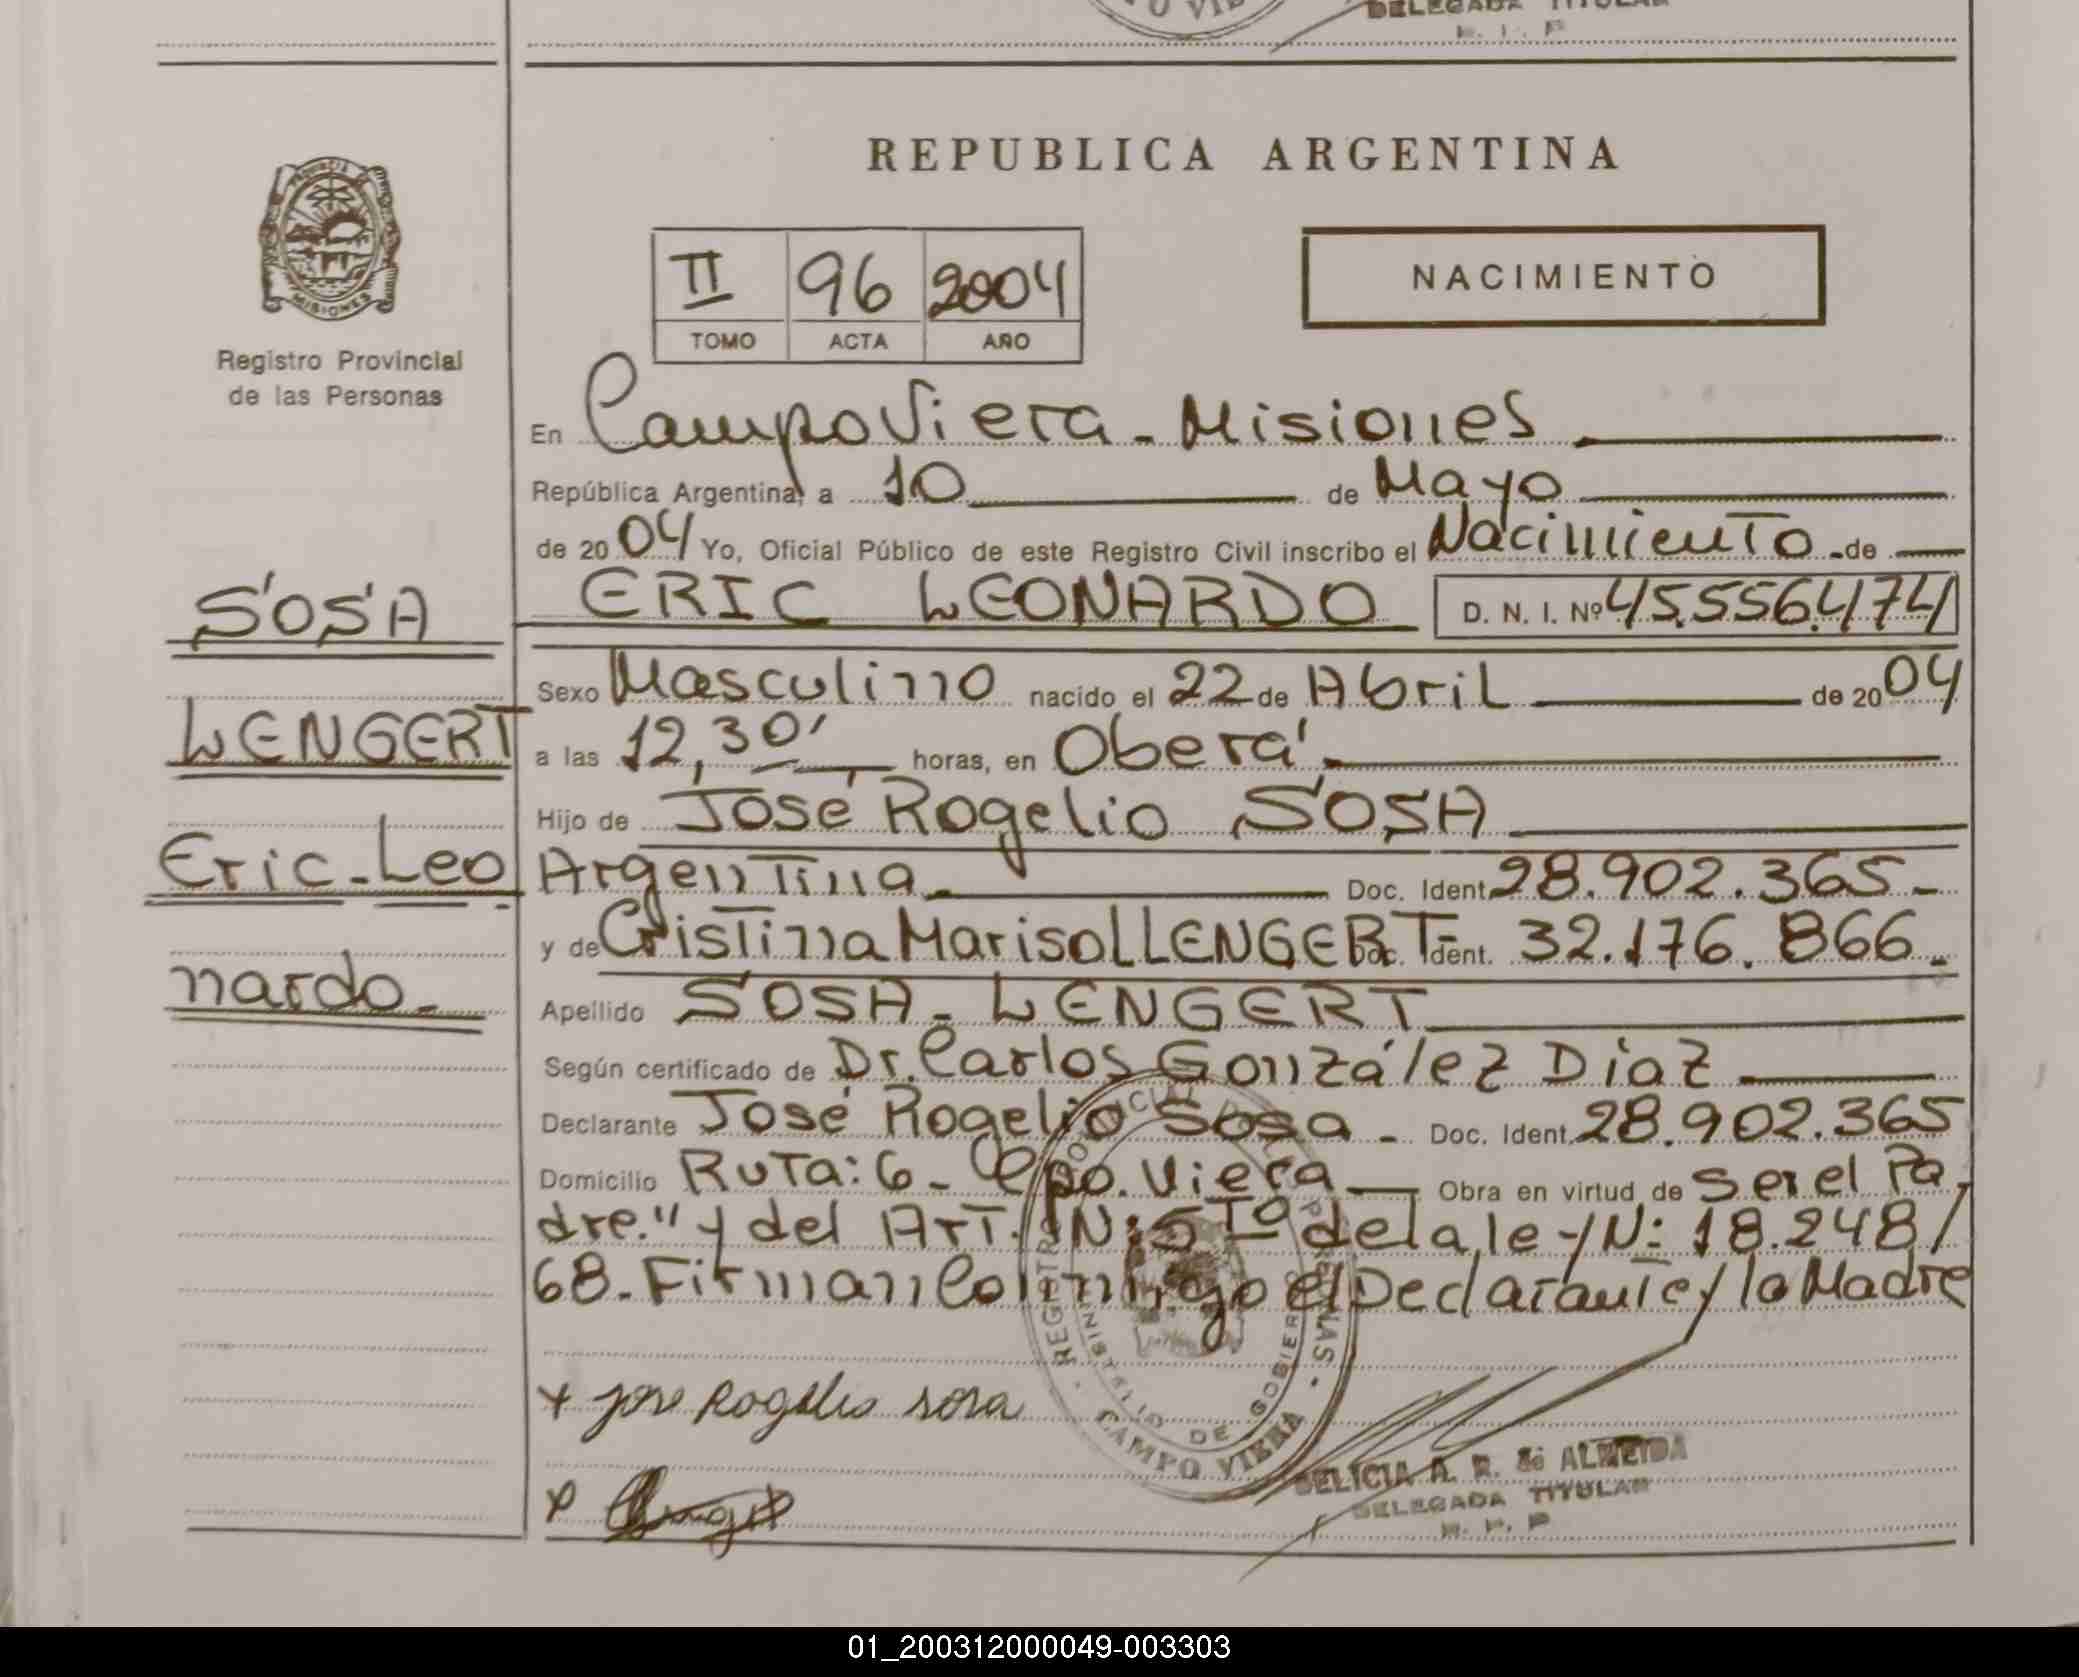 DELEGADA TITULAR
R. P. P
REPUBLICA ARGENTINA
PROVINCIA DE MISIONES
Registro Provincial
de las Personas
II 96 2004
TOMO ACTA AÑO
NACIMIENTO
En Campo Viera - Misiones
República Argentina, a 10 de Mayo
de 2004 Yo, Oficial Público de este Registro Civil inscribo el Nacimiento de
ERIC LEONARDO D. N. I. Nº 45.556.474
SOSA
LENGERT
Eric - Leo
nardo -
Sexo Masculino nacido el 22 de Abril de 2004
a las 12,30' horas, en Oberá
Hijo de José Rogelio SOSA
Argentina - Doc. Ident. 28.902.365 -
y de Cristina Marisol LENGERT - Doc. Ident. 32.176.866 -
Apellido SOSA - LENGERT
Según certificado de Dr. Carlos González Díaz
Declarante José Rogelio Sosa - Doc. Ident. 28.902.365
Domicilio Ruta: 6 - Cpo. Viera Obra en virtud de ser el Pa
dre." y del Art. N: 5Tº de la ley N: 18.248/
68. Firman Conmigo el Declarante y la Madre
REGISTRO PROVINCIAL DE LAS PERSONAS
MINISTERIO DE GOBIERNO
CAMPO VIERA
x jose Rogelio sosa
x
DELICIA A. R. de ALMEIDA
DELEGADA TITULAR
R. P. P
01_200312000049-003303